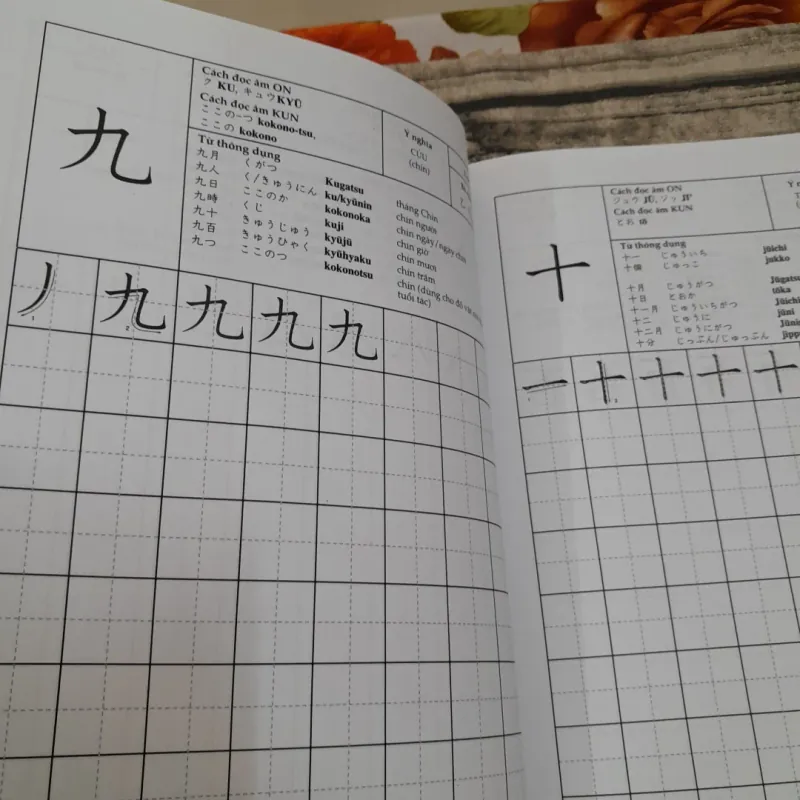 九
Cách đọc âm ON
ク KU, キュウ KYŪ
Cách đọc âm KUN
ここの-つ kokono-tsu,
ここの kokono
Ý nghĩa
CỬU
(chín)
Từ thông dụng
九月 くがつ Kugatsu tháng Chín
九人 く/きゅうにん ku/kyūnin chín người
九日 ここのか kokonoka chín ngày/ngày chín
九時 くじ kuji chín giờ
九十 きゅうじゅう kyūjū chín mươi
九百 きゅうひゃく kyūhyaku chín trăm
九つ ここのつ kokonotsu chín (dùng cho đồ vật
tuổi tác)
丿 九 九 九 九
1 2
十
Cách đọc âm ON
ジュウ JŪ, ジッ JI'
Cách đọc âm KUN
とお
Từ thông dụng
十一 じゅういち jūichi
十個 じゅっこ jukko
十月 じゅうがつ Jūgatsu
十日 とおか tōka
十一月 じゅういちがつ Jūichi
十二 じゅうに jūni
十二月 じゅうにがつ Jūni
十分 じっぷん/じゅっぷん jipp
一 十 十 十 十